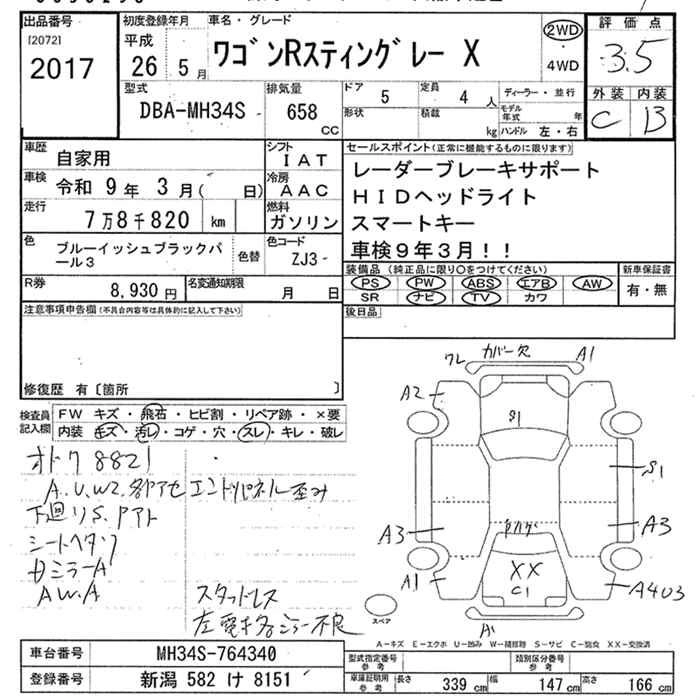 出品番号
[2072]
2017
初度登録年月
平成
26 5月
車名・グレード
ワゴンRスティングレー X
2WD
・
4WD
評価点
3.5
外装 内装
C B
型式
DBA-MH34S
排気量
658
CC
ドア 5
定員 4 人
形状
積載 kg
ディーラー・並行
モデル年式 年
ハンドル 左・右
車歴
自家用
シフト
IAT
車検
令和 9年 3月( 日)
冷房
AAC
走行
7万8千820 km
燃料
ガソリン
色
ブルーイッシュブラックパール3
色替
色コード
ZJ3-
R券
8,930 円
名変通知期限
月 日
セールスポイント(正常に機能するものに限ります)
レーダーブレーキサポート
HIDヘッドライト
スマートキー
車検9年3月!!
装備品(純正品に限り〇をつけてください)
PS PW ABS エアB AW
SR ナビ TV カワ
新車保証書
有・無
後日品
注意事項申告欄(不具合内容等は具体的に記入して下さい)
修復歴 有〔箇所 〕
検査員記入欄
FW キズ・飛石・ヒビ割・リペア跡・×要
内装 キズ・汚レ・コゲ・穴・スレ・キレ・破レ
オドク 8821
A.U.W2.各アセ エンドパネル歪み
下廻りS.アト
シートヘタリ
A.W.A
スタッドレス
左電格ミラー不良
ワレ カバー欠 A1
A2
S1
S1
A3
A3
A1
XX
C1
A403
スペア
A-キズ E-エクボ U-凹み W-補修跡 S-サビ C-腐食 XX-交換済
車台番号
MH34S-764340
登録番号
新潟 582 け 8151
型式指定番号
参考
類別区分番号
参考
車庫証明用
参考
長さ 339 cm
幅 147 cm
高さ 166 cm